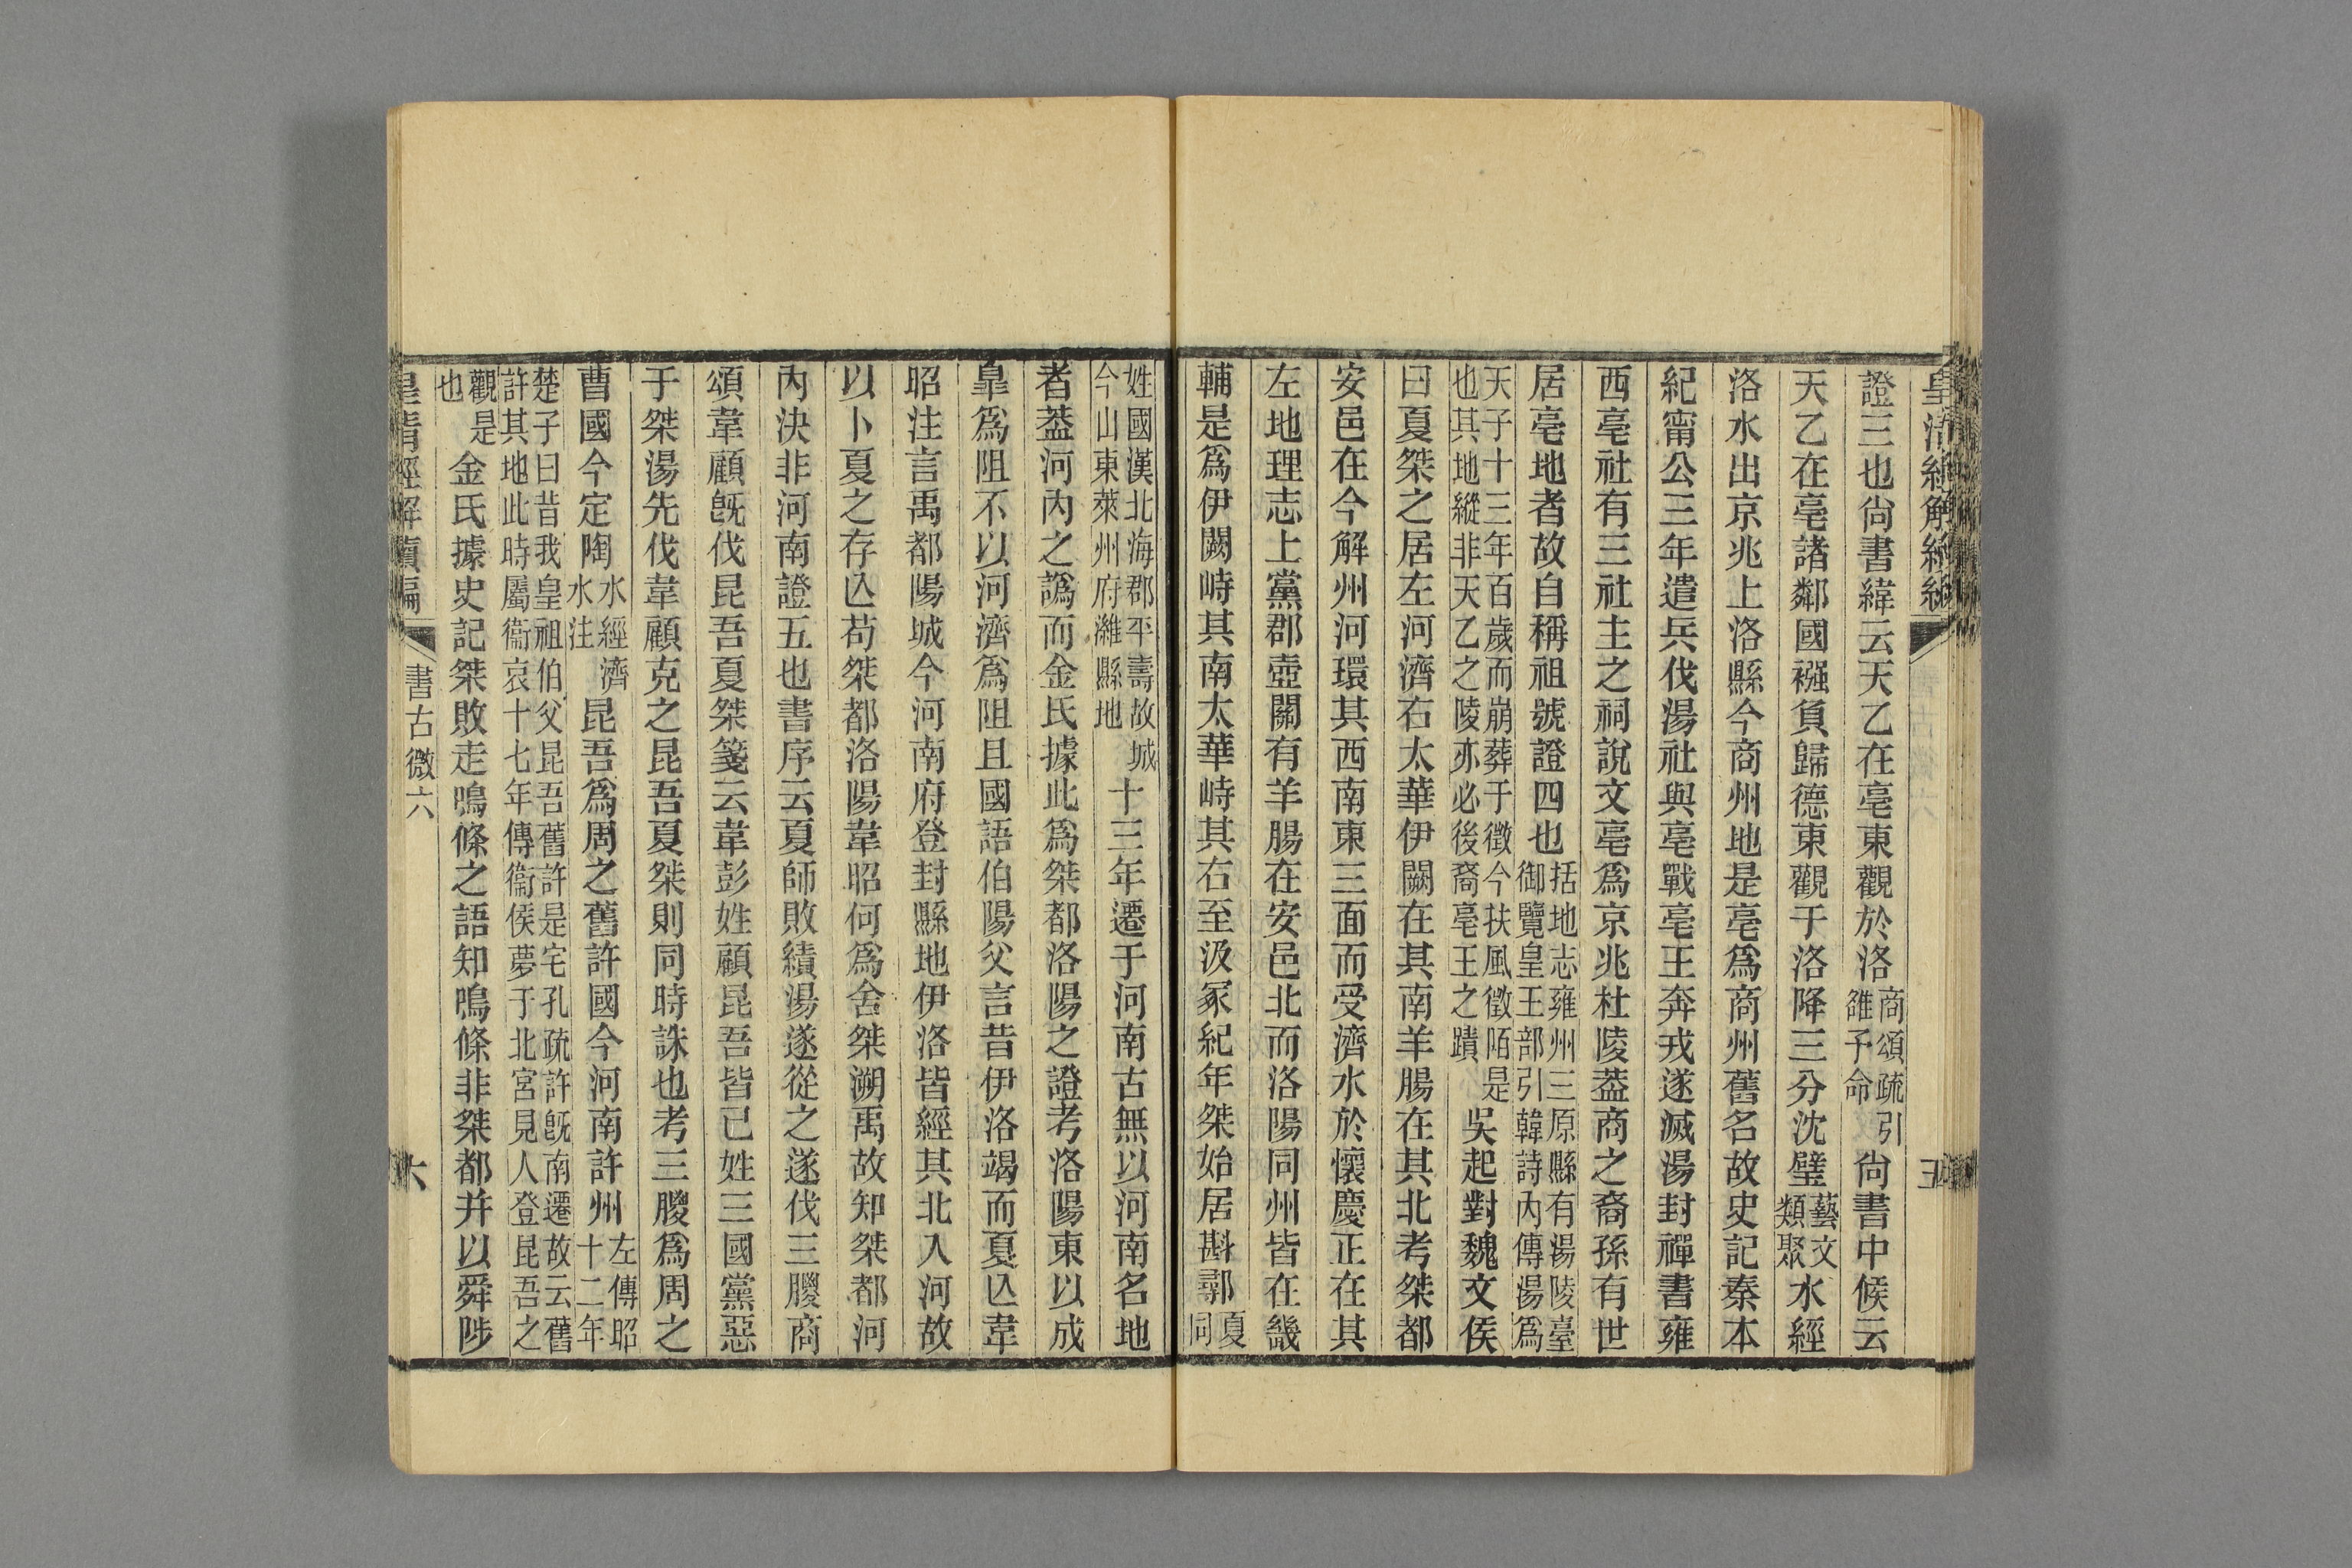 證三也尙書緯云天乙在亳東觀於洛商頌疏引雒予命尙書中候云
天乙在亳諸鄰國襁負歸德東觀于洛降三分沈璧藝文類聚水經
洛水出京兆上洛縣今商州地是亳爲商州舊名故史記秦本
紀甯公三年遣兵伐湯社與亳戰亳王奔戎遂滅湯封禪書雍
西亳社有三社主之祠說文亳爲京兆杜陵葢商之裔孫有世
居亳地者故自稱祖號證四也括地志雍州三原縣有湯陵臺御覽皇王部引韓詩內傳湯爲
天子十三年百歲而崩葬于徵今扶風徵陌是也其地縱非天乙之陵亦必後裔亳王之蹟吳起對魏文侯
曰夏桀之居左河濟右太華伊闕在其南羊腸在其北考桀都
安邑在今解州河環其西南東三面而受濟水於懷慶正在其
左地理志上黨郡壺關有羊腸在安邑北而洛陽同州皆在畿
輔是爲伊闕峙其南太華峙其右至汲冢紀年桀始居斟鄩夏同
姓國漢北海郡平壽故城今山東萊州府濰縣地十三年遷于河南古無以河南名地
者葢河內之譌而金氏據此爲桀都洛陽之證考洛陽東以成
臯爲阻不以河濟爲阻且國語伯陽父言昔伊洛竭而夏亾韋
昭注言禹都陽城今河南府登封縣地伊洛皆經其北入河故
以卜夏之存亾苟桀都洛陽韋昭何爲舍桀溯禹故知桀都河
內決非河南證五也書序云夏師敗績湯遂從之遂伐三朡商
頌韋顧旣伐昆吾夏桀箋云韋彭姓顧昆吾皆己姓三國黨惡
于桀湯先伐韋顧克之昆吾夏桀則同時誅也考三朡爲周之
曹國今定陶水經濟水注昆吾爲周之舊許國今河南許州左傳昭十二年
楚子曰昔我皇祖伯父昆吾舊許是宅孔疏許旣南遷故云舊許其地此時屬衞哀十七年傳衞侯夢于北宮見人登昆吾之
觀是也金氏據史記桀敗走鳴條之語知鳴條非桀都并以舜陟
皇淸經解續編 書古微六 六